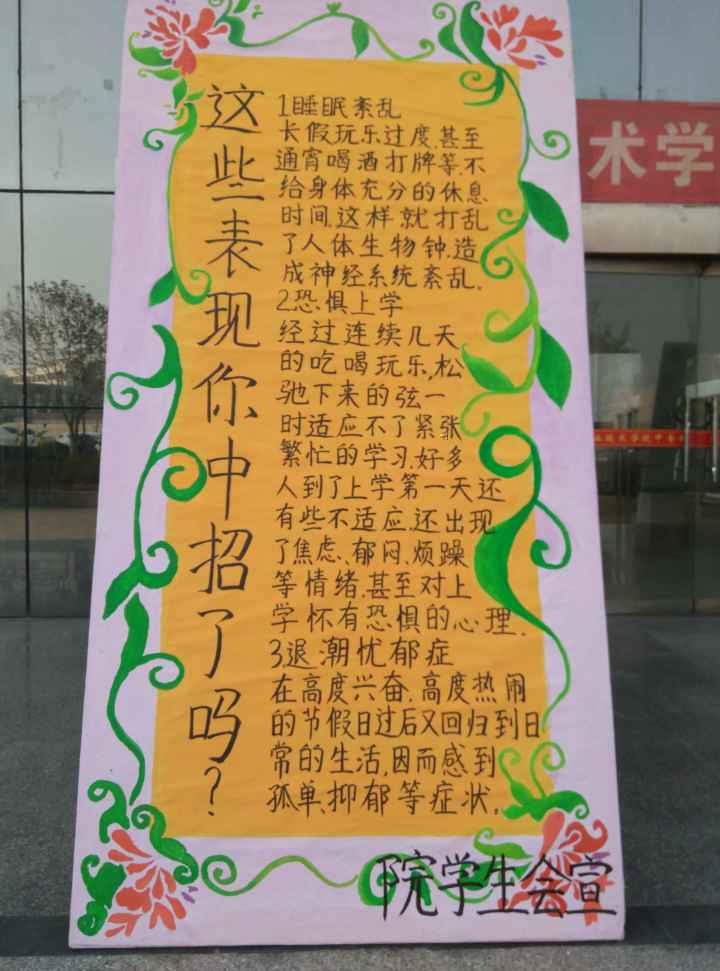 这些表现你中招了吗?
1睡眠紊乱
长假玩乐过度,甚至
通宵喝酒打牌等,不
给身体充分的休息
时间,这样,就打乱
了人体生物钟,造
成神经系统紊乱。
2恐惧上学
经过连续几天
的吃喝玩乐,松
驰下来的弦一
时适应不了紧张
繁忙的学习,好多
人到了上学第一天还
有些不适应,还出现
了焦虑、郁闷、烦躁
等情绪,甚至对上
学怀有恐惧的心理.
3,退潮忧郁症
在高度兴奋,高度热闹
的节假日过后又回归到日
常的生活,因而感到
孤单、抑郁等症状。
院学生会宣
术学